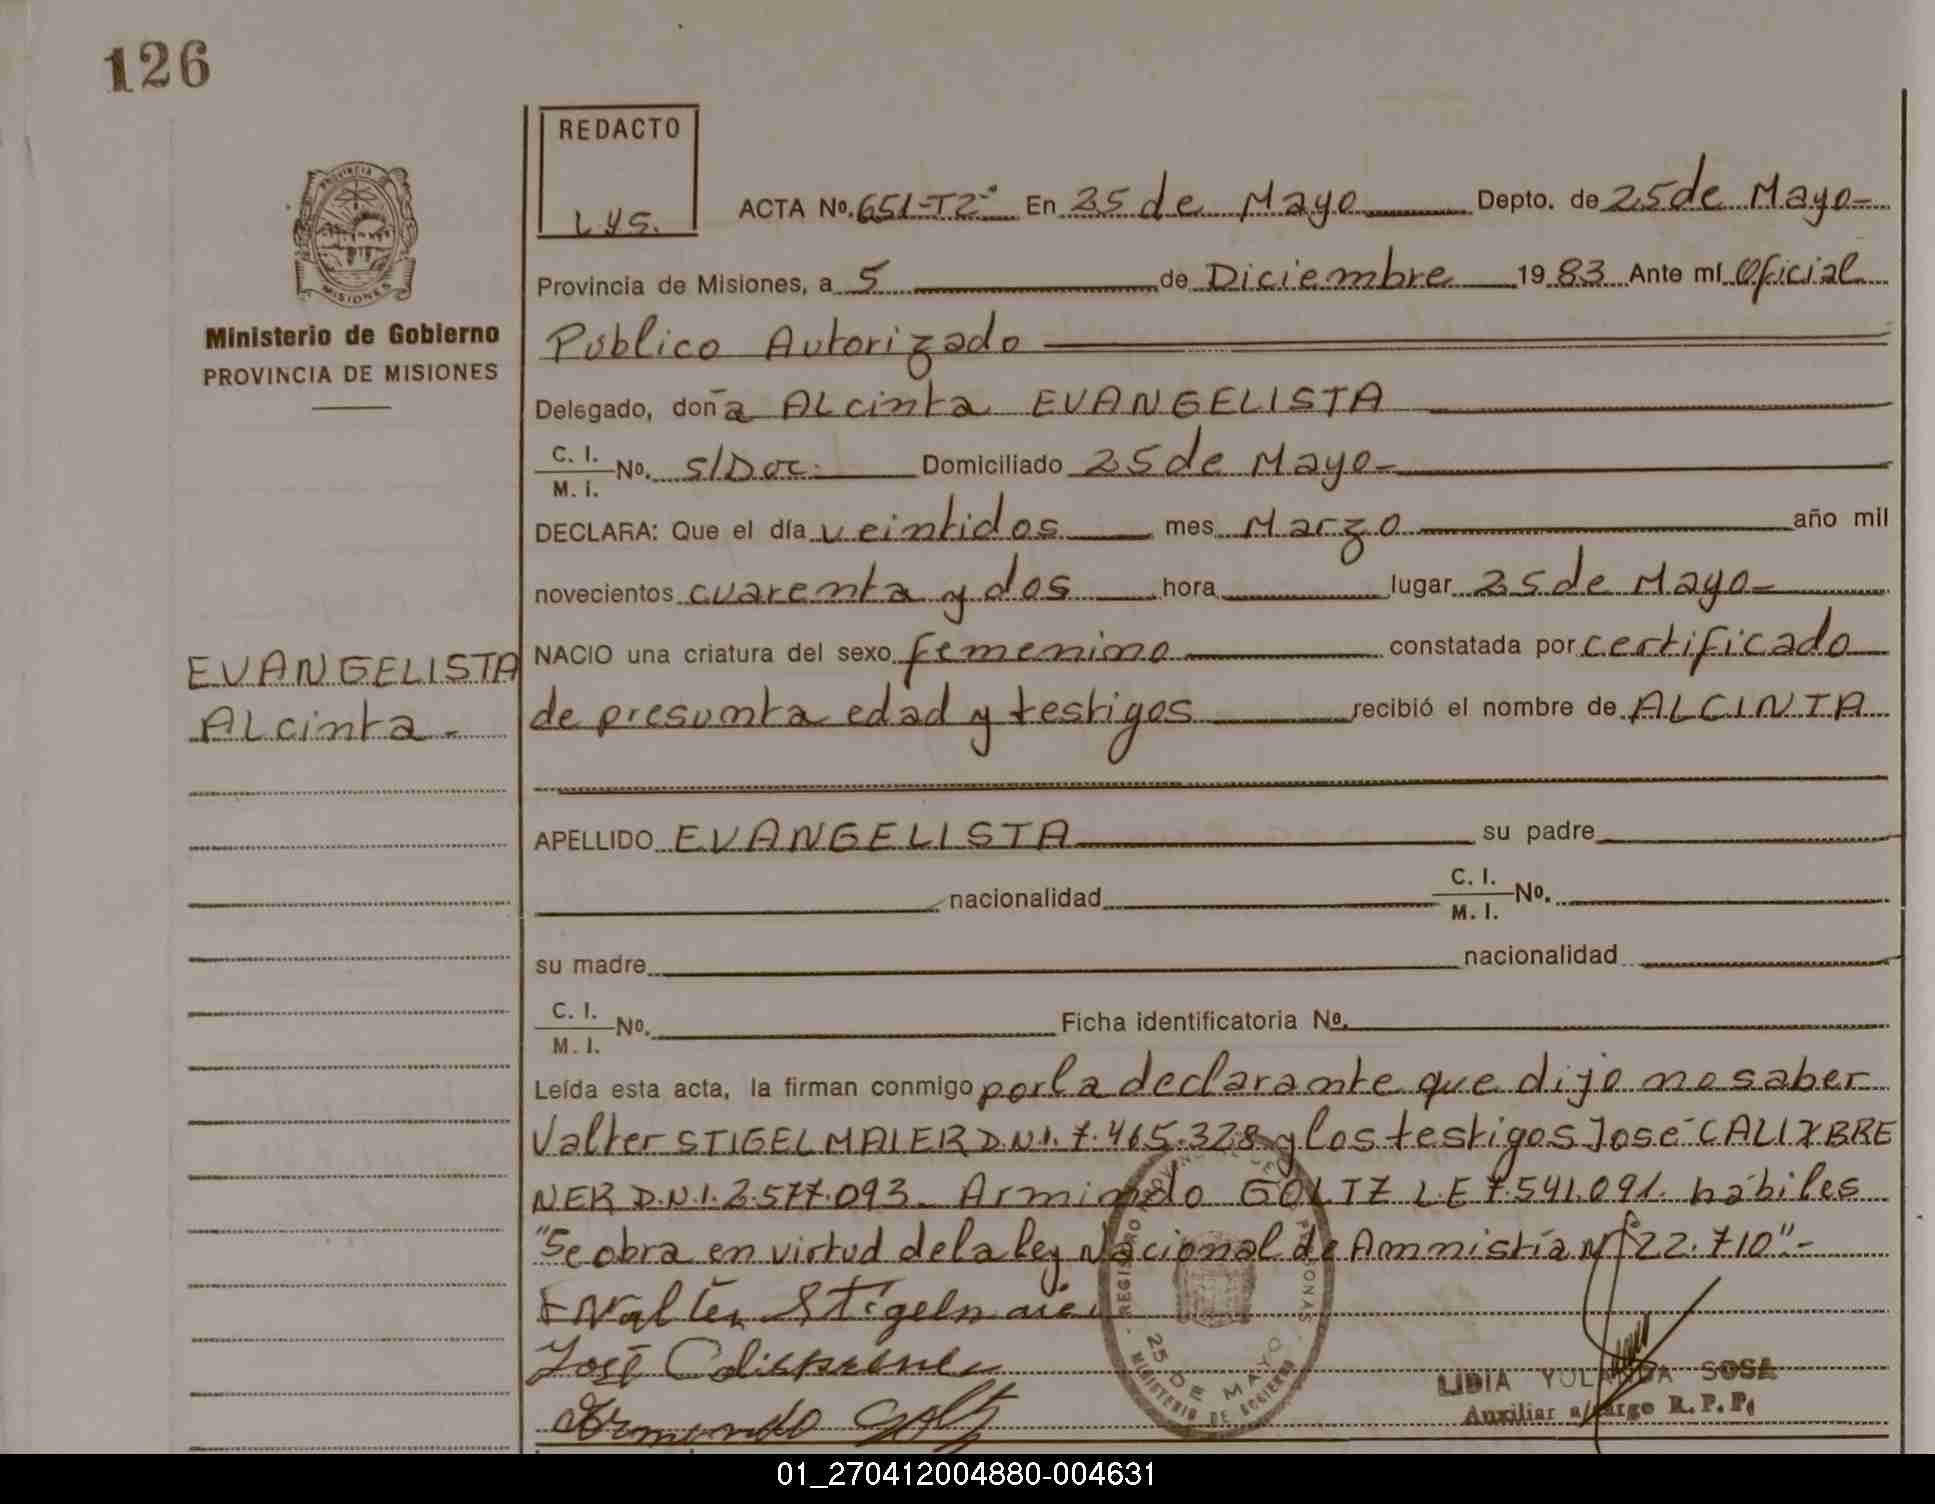 126
REDACTO
L y S.
PROVINCIA
MISIONES
Ministerio de Gobierno
PROVINCIA DE MISIONES
ACTA No. 651-T2º En 25 de Mayo Depto. de 25 de Mayo-
Provincia de Misiones, a 5 de Diciembre 1983 Ante mí Oficial
Público Autorizado
Delegado, doña Alcinta EVANGELISTA
C. I.
M. I. No. S/Doc. Domiciliado 25 de Mayo-
DECLARA: Que el día veintidos mes Marzo año mil
novecientos cuarenta y dos hora lugar 25 de Mayo-
NACIO una criatura del sexo femenino constatada por certificado
EVANGELISTA
Alcinta-
de presunta edad y testigos recibió el nombre de ALCINTA
APELLIDO EVANGELISTA su padre
nacionalidad C. I.
M. I. No.
su madre nacionalidad
C. I.
M. I. No. Ficha identificatoria No.
Leída esta acta, la firman conmigo por la declarante que dijo no saber
Valter STIGELMAIER D.N.I. 7.465.328 y los testigos José CALIXBRE
NER D.N.I. 2.577.093- Armindo GOLTZ L.E 7.541.091. hábiles
"Se obra en virtud de la ley Nacional de Ammistía Nº 22.710"-
Walter Stigelmaier
José
Armindo Goltz
25 DE MAYO
MINISTERIO DE GOBIERNO
LIDIA YOLANDA SOSA
Auxiliar a/cargo R. P. P.
01_270412004880-004631